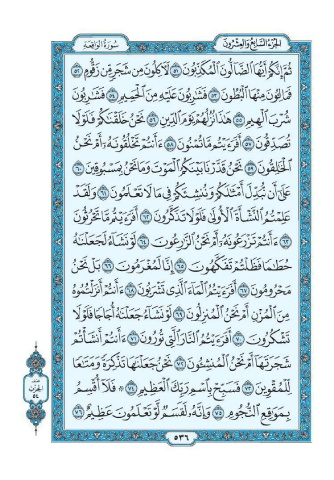 الجزء السابع والعشرون
سورة الواقعة
ثُمَّ إِنَّكُمْ أَيُّهَا ٱلضَّآلُّونَ ٱلْمُكَذِّبُونَ ٥١ لَـَٔاكِلُونَ مِن شَجَرٍ مِّن زَقُّومٍ ٥٢
فَمَالِـُٔونَ مِنْهَا ٱلْبُطُونَ ٥٣ فَشَـٰرِبُونَ عَلَيْهِ مِنَ ٱلْحَمِيمِ ٥٤ فَشَـٰرِبُونَ
شُرْبَ ٱلْهِيمِ ٥٥ هَـٰذَا نُزُلُهُمْ يَوْمَ ٱلدِّينِ ٥٦ نَحْنُ خَلَقْنَـٰكُمْ فَلَوْلَا
تُصَدِّقُونَ ٥٧ أَفَرَءَيْتُم مَّا تُمْنُونَ ٥٨ ءَأَنتُمْ تَخْلُقُونَهُۥٓ أَمْ نَحْنُ
ٱلْخَـٰلِقُونَ ٥٩ نَحْنُ قَدَّرْنَا بَيْنَكُمُ ٱلْمَوْتَ وَمَا نَحْنُ بِمَسْبُوقِينَ ٦٠
عَلَىٰٓ أَن نُّبَدِّلَ أَمْثَـٰلَكُمْ وَنُنشِئَكُمْ فِى مَا لَا تَعْلَمُونَ ٦١ وَلَقَدْ
عَلِمْتُمُ ٱلنَّشْأَةَ ٱلْأُولَىٰ فَلَوْلَا تَذَكَّرُونَ ٦٢ أَفَرَءَيْتُم مَّا تَحْرُثُونَ
٦٣ ءَأَنتُمْ تَزْرَعُونَهُۥٓ أَمْ نَحْنُ ٱلزَّٰرِعُونَ ٦٤ لَوْ نَشَآءُ لَجَعَلْنَـٰهُ
حُطَـٰمًا فَظَلْتُمْ تَفَكَّهُونَ ٦٥ إِنَّا لَمُغْرَمُونَ ٦٦ بَلْ نَحْنُ
مَحْرُومُونَ ٦٧ أَفَرَءَيْتُمُ ٱلْمَآءَ ٱلَّذِى تَشْرَبُونَ ٦٨ ءَأَنتُمْ أَنزَلْتُمُوهُ
مِنَ ٱلْمُزْنِ أَمْ نَحْنُ ٱلْمُنزِلُونَ ٦٩ لَوْ نَشَآءُ جَعَلْنَـٰهُ أُجَاجًا فَلَوْلَا
تَشْكُرُونَ ٧٠ أَفَرَءَيْتُمُ ٱلنَّارَ ٱلَّتِى تُورُونَ ٧١ ءَأَنتُمْ أَنشَأْتُمْ
شَجَرَتَهَآ أَمْ نَحْنُ ٱلْمُنشِـُٔونَ ٧٢ نَحْنُ جَعَلْنَـٰهَا تَذْكِرَةً وَمَتَـٰعًا
لِّلْمُقْوِينَ ٧٣ فَسَبِّحْ بِٱسْمِ رَبِّكَ ٱلْعَظِيمِ ٧٤ ۞ فَلَآ أُقْسِمُ
بِمَوَٰقِعِ ٱلنُّجُومِ ٧٥ وَإِنَّهُۥ لَقَسَمٌ لَّوْ تَعْلَمُونَ عَظِيمٌ ٧٦
الحزب
٥٤
٥٣٦